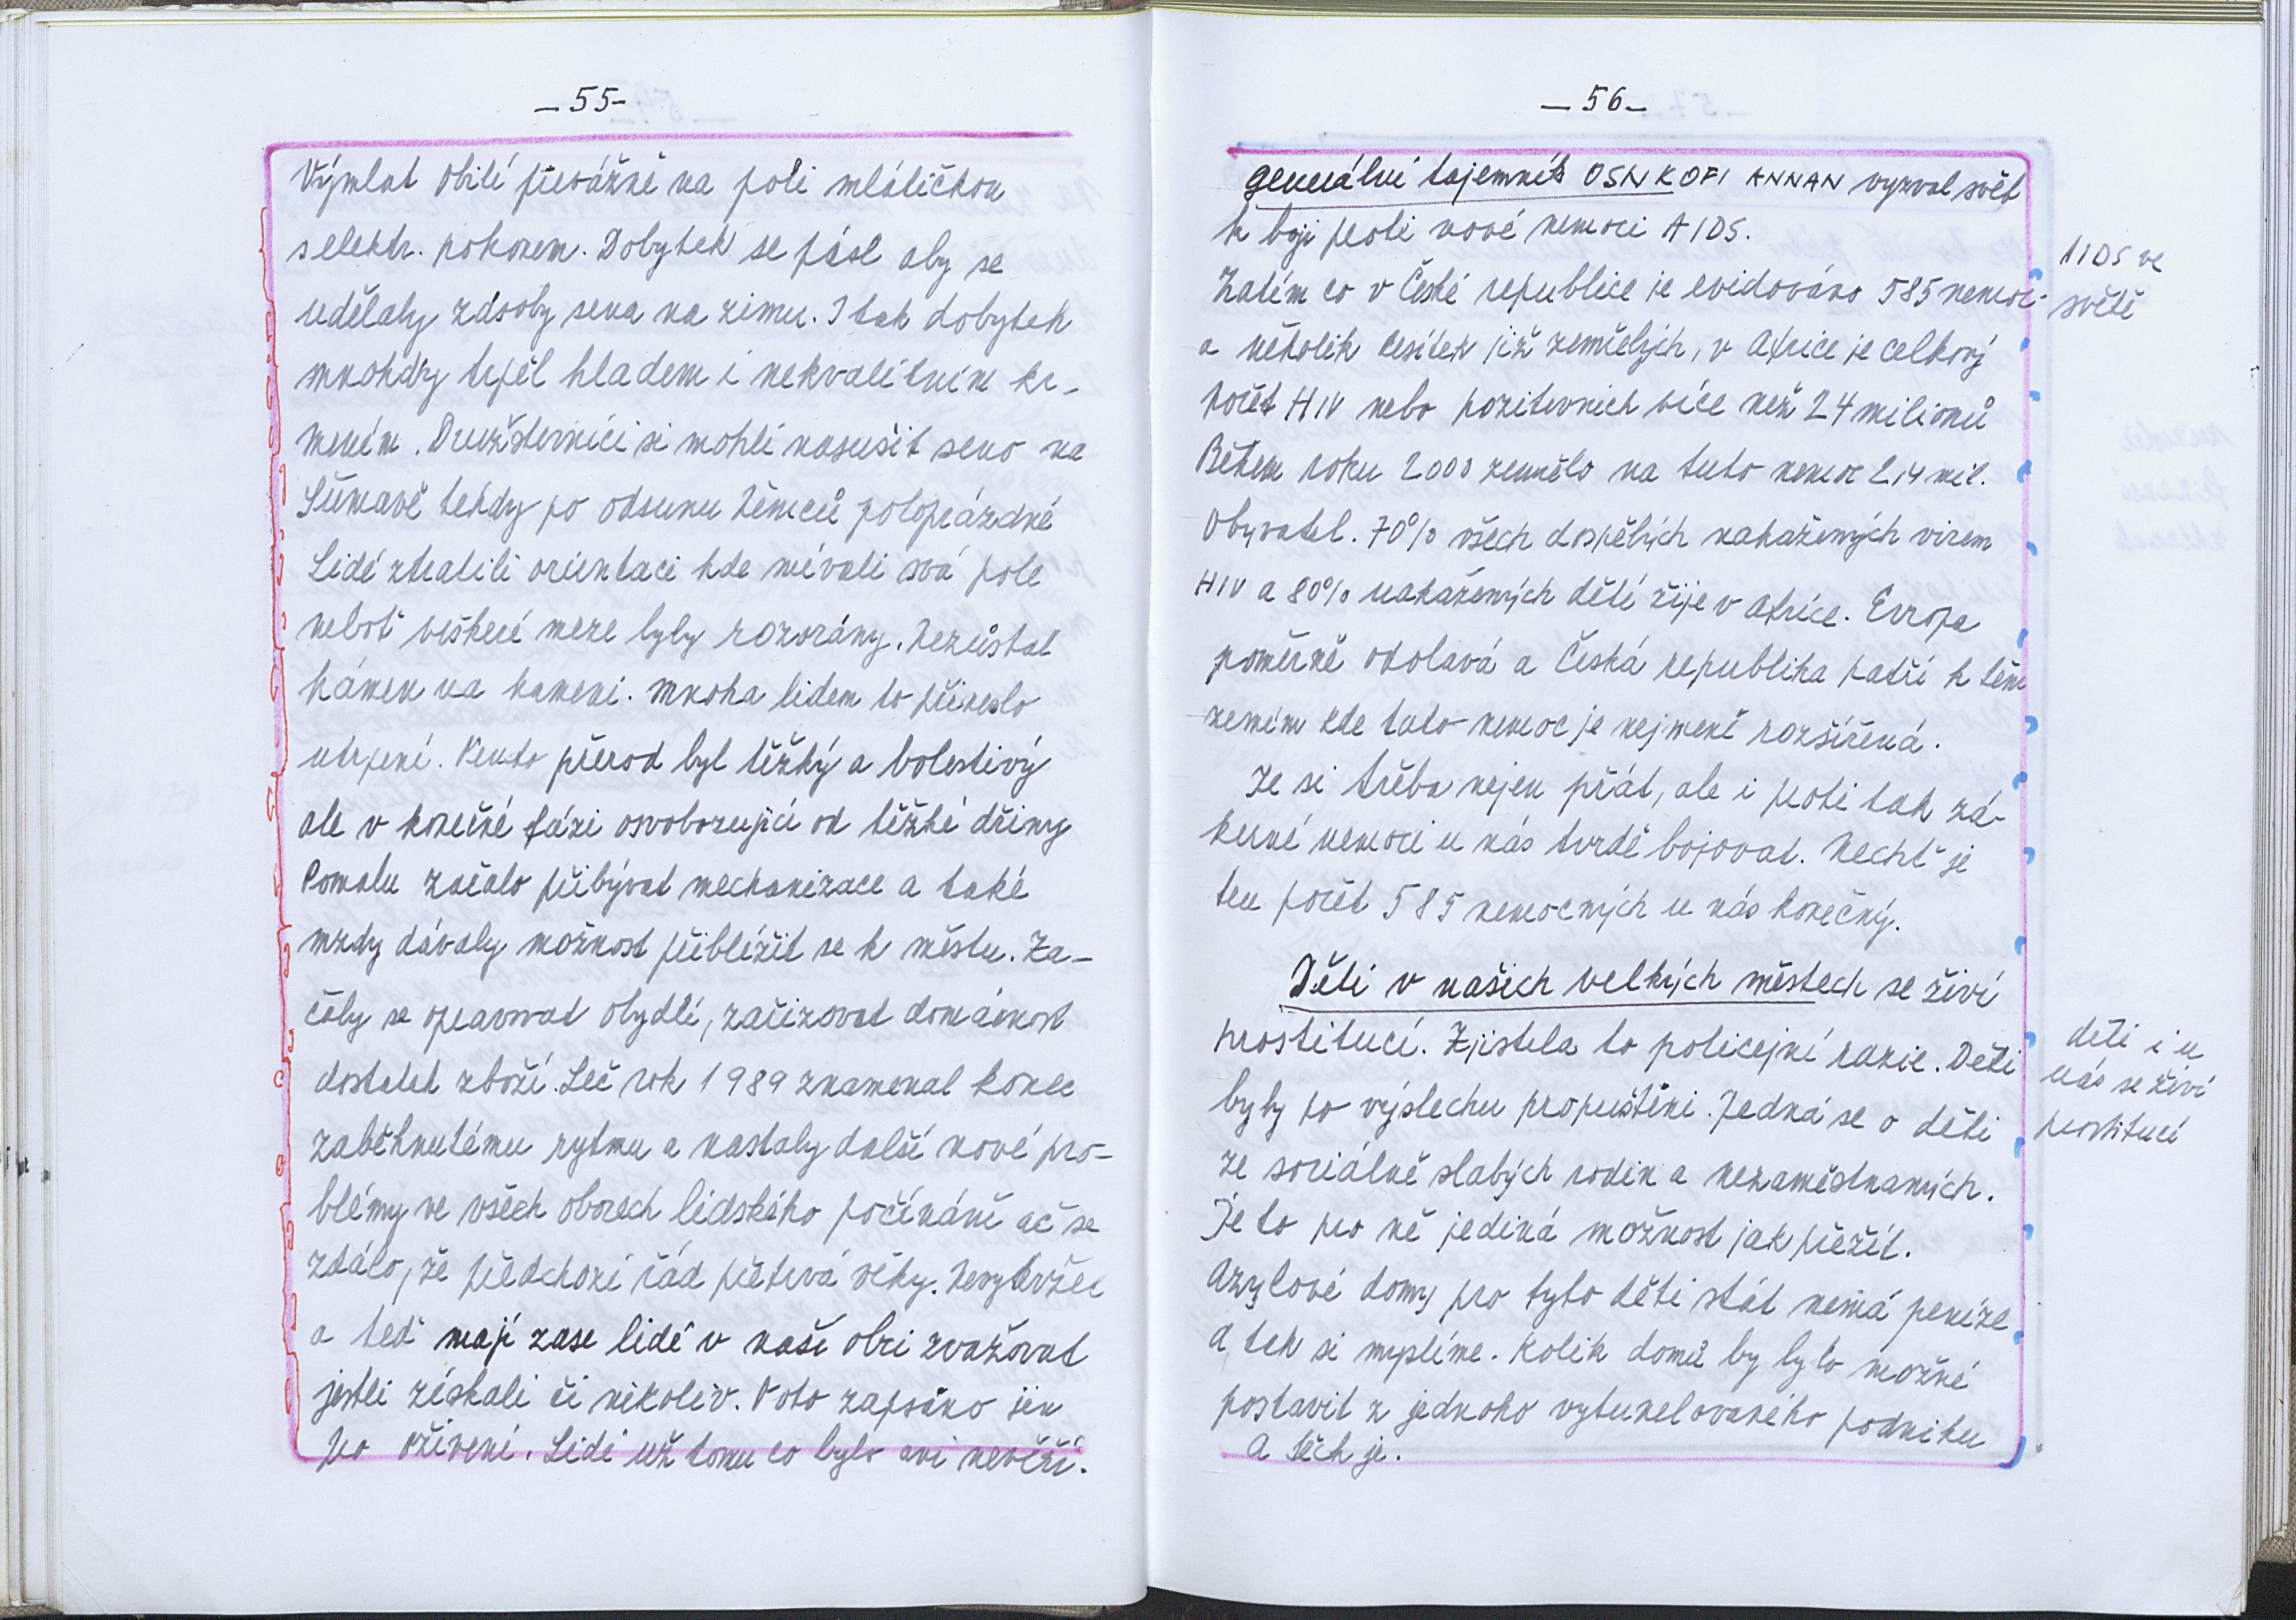 - 55 -
Výmlat obilí převážně na poli mlátičkou
s elektr. pohonem. Dobytek se pásl aby se
udělaly zásoby sena na zimu. I tak dobytek
mnohdy trpěl hladem i nekvalitním kr-
mením. Družstevníci si mohli nasušit seno na
Šumavě tehdy po odsunu Němců poloprázdné
Lidé ztratili orientaci kde mívali svá pole
neboť veškeré meze byly rozorány. Nezůstal
kámen na kameni. Mnoha lidem to přineslo
utrpení. Tento přerod byl těžký a bolestivý
ale v konečné fázi osvobozující od těžké dřiny
Pomalu začalo přibývat mechanizace a také
mzdy dávaly možnost přiblížit se k městu. Za-
čaly se opravovat obydlí, zařizovat domácnost
dostatet zboží. Leč rok 1989 znamenal konec
zaběhnutému rytmu a nastaly další nové pro-
blémy ve všech oborech lidského počínání ač se
zdálo, že předchozí řád přetrvá věky. Nevydržel
a teď mají zase lidé v naší obci zvažovat
jestli získali či nikoliv. Toto zapsáno jen
pro oživení. Lidé už tomu co bylo ani nevěří.
- 56 -
generální tajemník OSN KOFI ANNAN vyzval svět
k boji proti nové nemoci AIDS.
Zatím co v České republice je evidováno 585 nemoc-
a několik desítek již zemřelých, v Africe je celkový
počet HIV nebo pozitivních více než 24 milionů
Během roku 2000 zemřelo na tuto nemoc 2,4 mil.
Obyvatel. 70% všech dospělých nakažených virem
HIV a 80% nakažených dětí žije v Africe. Evropa
poměrně odolává a Česká republika patří k těm
zemím kde tato nemoc je nejméně rozšířená.
Je si třeba nejen přát, ale i proti tak zá-
keřné nemoci u nás tvrdě bojovat. Nechť je
ten počet 585 nemocných u nás konečný.
Děti v našich velkých městech se živí
prostitucí. Zjistila to policejní razie. Děti
byly po výslechu propuštěni. Jedná se o děti
ze sociálně slabých rodin a nezaměstnaných.
Je to pro ně jediná možnost jak přežít.
Azylové domy pro tyto děti stát nemá peníze
a tak si myslíme. Kolik domů by bylo možné
postavit z jednoho vytunelovaného podniku
a těch je.
AIDS ve
světě
děti i u
nás se živí
prostitucí